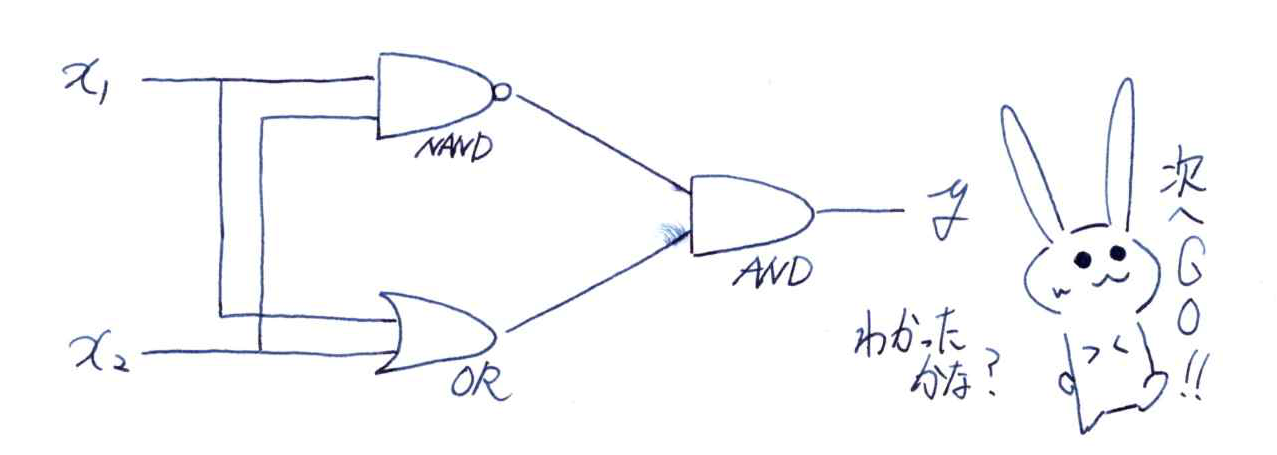 x₁
NAND
x₂
OR
AND
y
わかった
かな?
次へGO!!